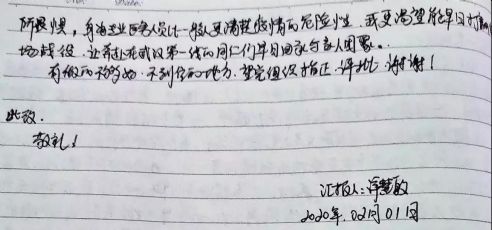 所畏惧，身为专业医务人员比一般人更清楚疫情的危险性，我更渴望能早日打赢
场战役，让奔赴在武汉第一线的同仁们早日回家与家人团聚。
有做的不够好、不到位的地方，望党组织指正、评批，谢谢！
此致
敬礼！
汇报人：许慧敏
2020年02月01日